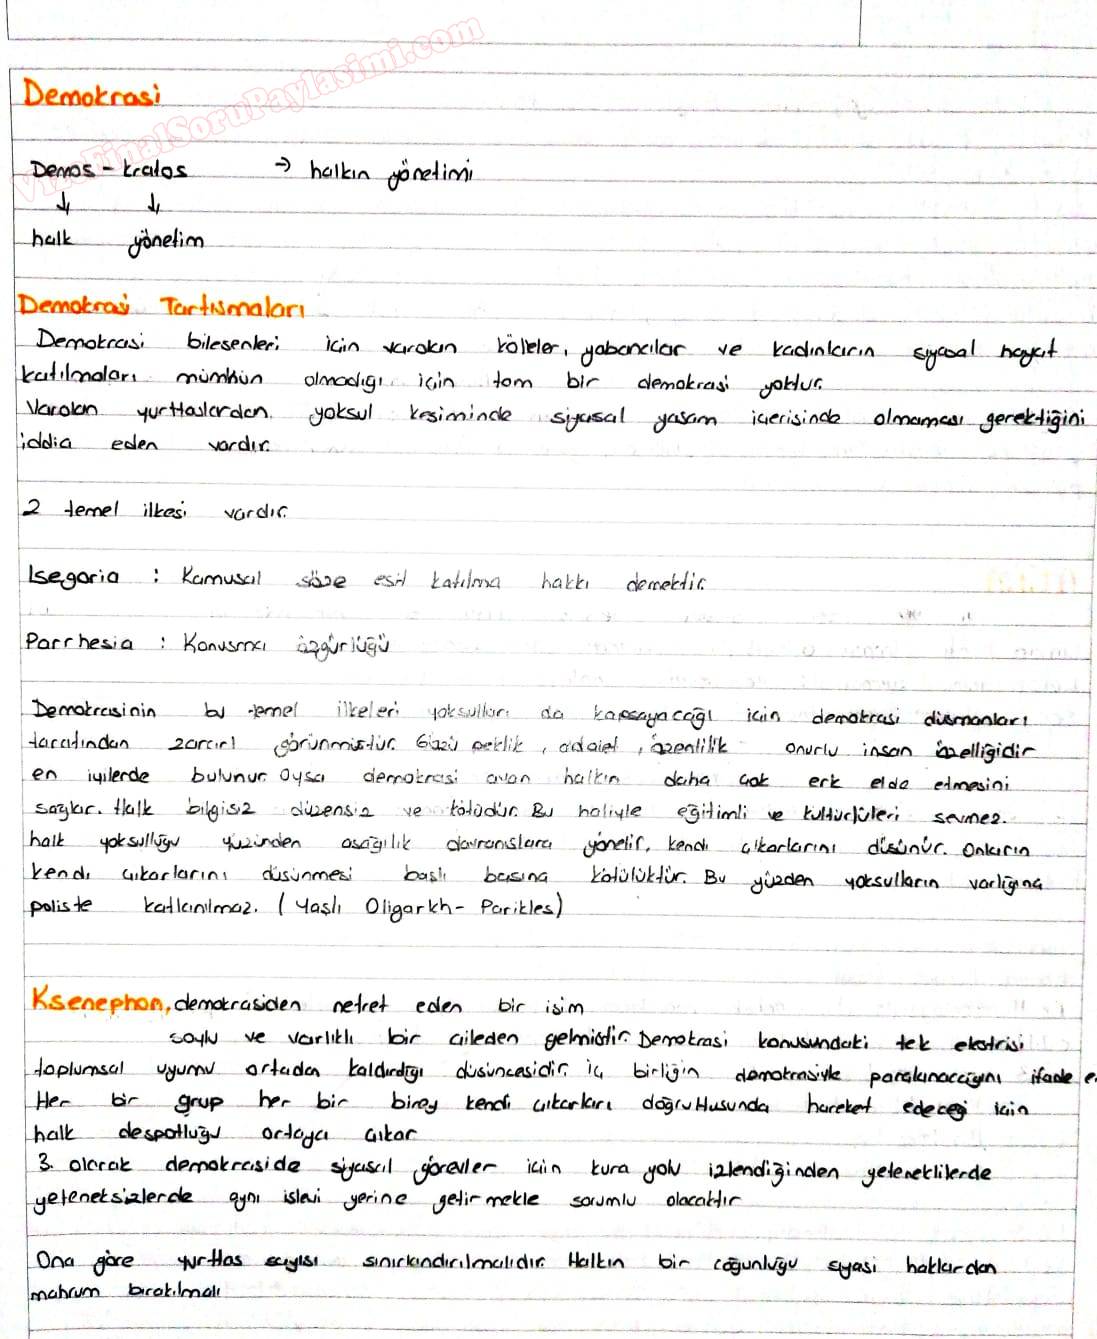 VizeFinalSoruPaylasimi.com
Demokrasi
Demos - kratos → halkın yönetimi
↓ ↓
halk yönetim
Demokrasi Tartısmaları
Demokrasi bilesenleri icin varolan köleler, yabancılar ve kadınların siyasal hayat
katılmaları mümkün olmadığı için tam bir demokrasi yoktur.
Varolan yurttaslardan yoksul kesiminde siyasal yasam icerisinde olmaması gerektiğini
iddia eden vardır.
2 temel ilkesi vardır.
Isegoria : Kamusal söze esit katılma hakkı demektir.
Parrhesia : Konusma özgürlüğü
Demokrasinin bu temel ilkeleri yoksulları da kapsayacağı icin demokrasi düsmanları
tarafından zararlı görünmüstür. Gözü peklik, adalet, özenlilik onurlu insan özelliğidir
en iyilerde bulunur. Oysa demokrasi avan halkın daha cok erk elde etmesini
sağlar. Halk bilgisiz düzensiz ve kötüdür. Bu haliyle eğitimli ve kültürlüleri sevmez.
halk yoksulluğu yüzünden asağılık davranıslara yönelir, kendi cıkarlarını düsünür. Onların
kendi cıkarlarını düsünmesi baslı basına kötülüktür. Bu yüzden yoksulların varlığına
poliste katlanılmaz. ( Yaşlı Oligarkh - Parikles)
Ksenephon, demokrasiden nefret eden bir isim
soylu ve varlıklı bir aileden gelmistir. Demokrasi konusundaki tek elestrisi
toplumsal uyumu ortadan kaldırdığı düsüncesidir. iç birliğin demokrasiyle paralanacağını ifade e
Her bir grup her bir birey kendi cıkarları doğrultusunda hareket edeceği icin
halk despotluğu ortaya cıkar
3. olarak demokraside siyasal görevler icin kura yolu izlendiğinden yeteneklilerde
yeteneksizlerde aynı islevi yerine getirmekle sorumlu olacaktır
Ona göre yurttas sayısı sınırlandırılmalıdır. Halkın bir coğunluğu siyasi haklardan
mahrum bırakılmalı